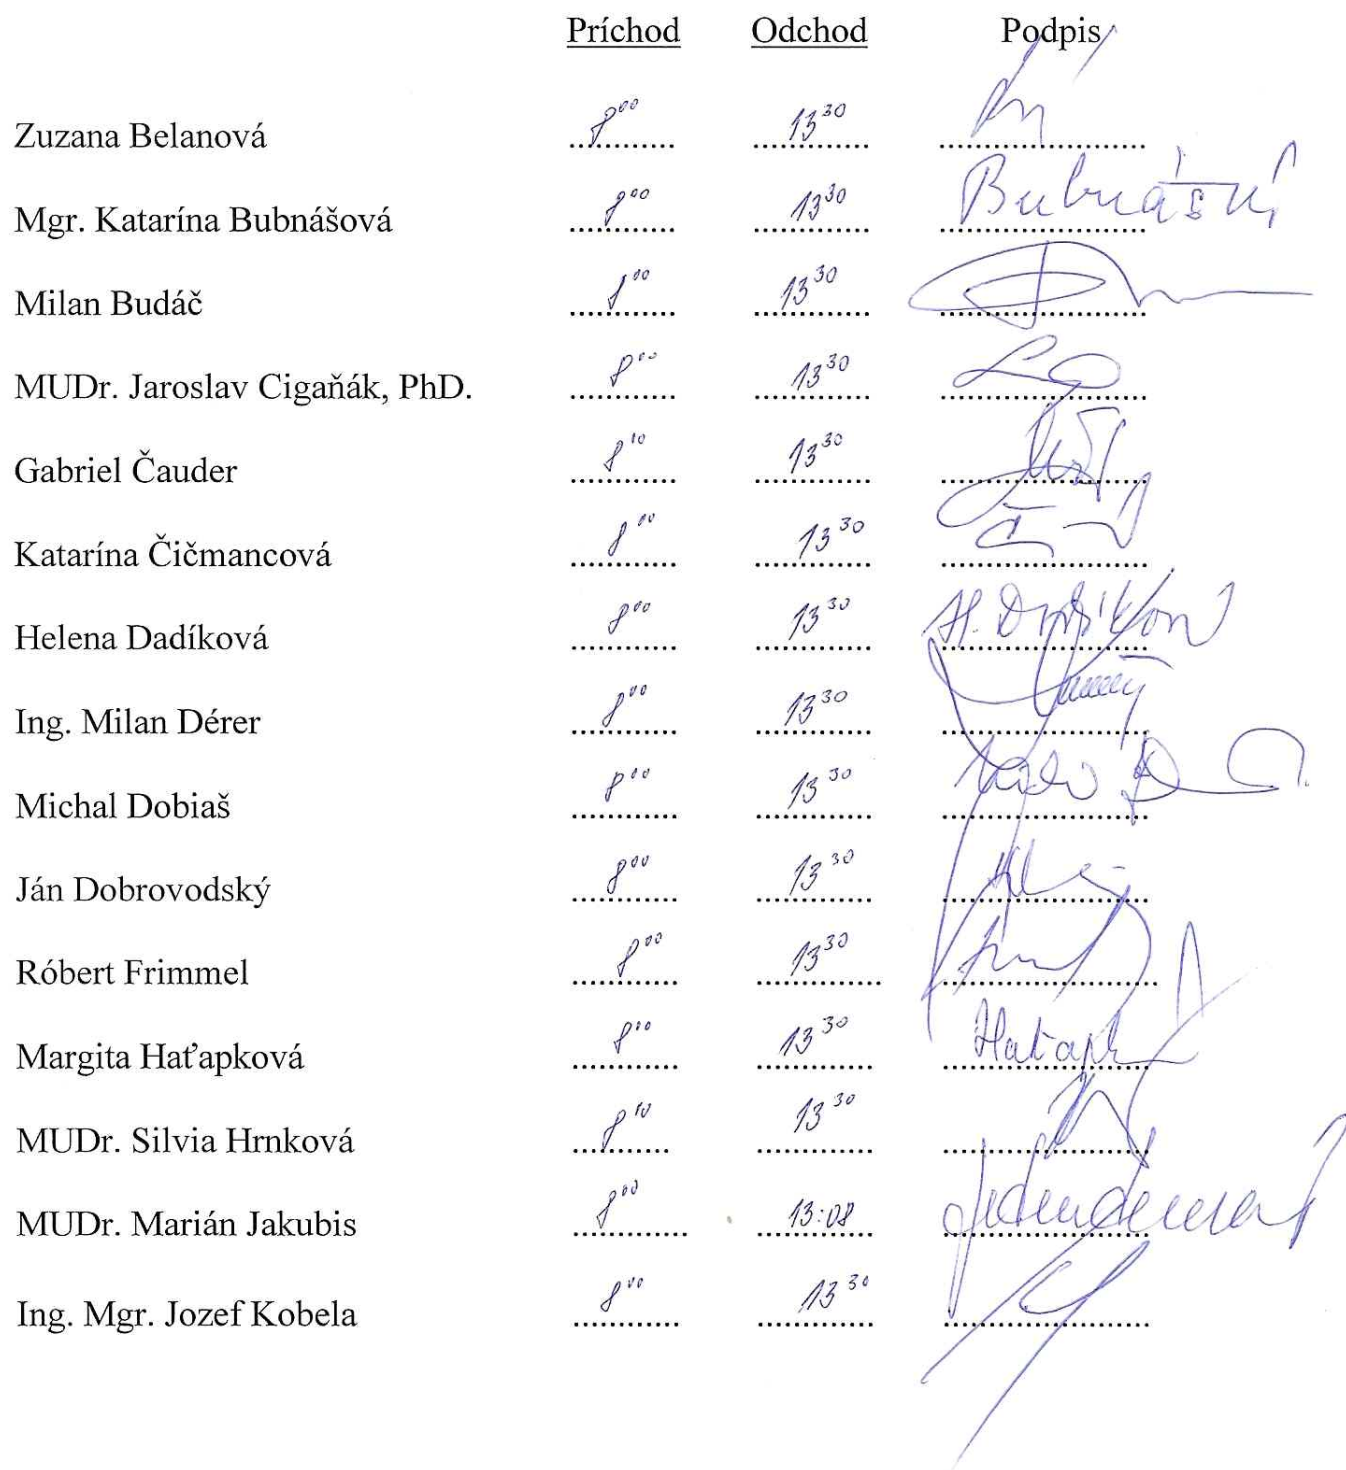 Príchod Odchod Podpis
Zuzana Belanová 8⁰⁰ 13³⁰
Mgr. Katarína Bubnášová 8⁰⁰ 13³⁰
Milan Budáč 8⁰⁰ 13³⁰
MUDr. Jaroslav Cigaňák, PhD. 8⁰⁰ 13³⁰
Gabriel Čauder 8¹⁰ 13³⁰
Katarína Čičmancová 8⁰⁰ 13³⁰
Helena Dadíková 8⁰⁰ 13³⁰
Ing. Milan Dérer 8⁰⁰ 13³⁰
Michal Dobiaš 8⁰⁰ 13³⁰
Ján Dobrovodský 8⁰⁰ 13³⁰
Róbert Frimmel 8⁰⁰ 13³⁰
Margita Haťapková 8⁰⁰ 13³⁰
MUDr. Silvia Hrnková 8¹⁰ 13³⁰
MUDr. Marián Jakubis 8⁰⁰ 13:08
Ing. Mgr. Jozef Kobela 8⁰⁰ 13³⁰